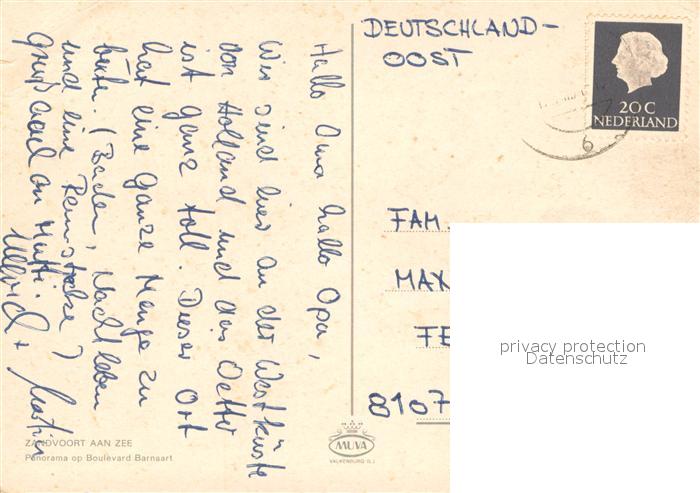 Hallo Oma hallo Opa,
Wir sind hier an der Westküste
von Holland und das Wetter
ist ganz toll. Dieser Ort
hat eine ganze Menge zu
bieten. (Baden, Nachtleben
und eine Rennstrecke)
Gruß auch an Mutti.
Ulrich + Martin
ZANDVOORT AAN ZEE
Panorama op Boulevard Barnaart
MUVA
VALKENBURG (L.)
DEUTSCHLAND-
OOST
20 C
NEDERLAND
6
FAM.
MAX
FE
8107
privacy protection
Datenschutz